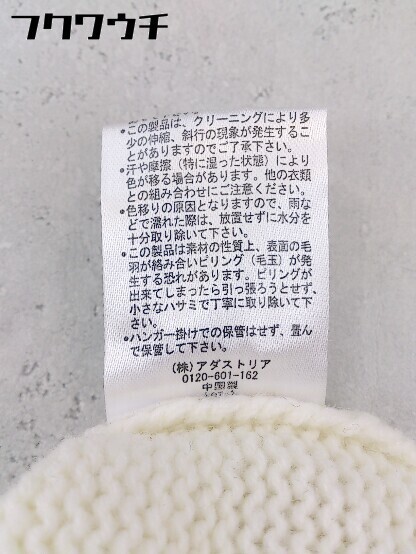 フクワウチ
•この製品は、クリーニングにより多
少の伸縮、斜行の現象が発生するこ
とがありますのでご了承下さい。
•汗や摩擦（特に湿った状態）により
色が移る場合があります。他の衣類
との組み合わせにご注意ください。
•色移りの原因となりますので、雨な
どで濡れた際は、放置せずに水分を
十分取り除いて下さい。
•この製品は素材の性質上、表面の毛
羽が絡み合いピリング（毛玉）が発
生する恐れがあります。ピリングが
出来てしまったら引っ張ろうとせず、
小さなハサミで丁寧に取り除いて下
さい。
•ハンガー掛けでの保管はせず、畳ん
で保管して下さい。
（株）アダストリア
0120-601-162
中国製